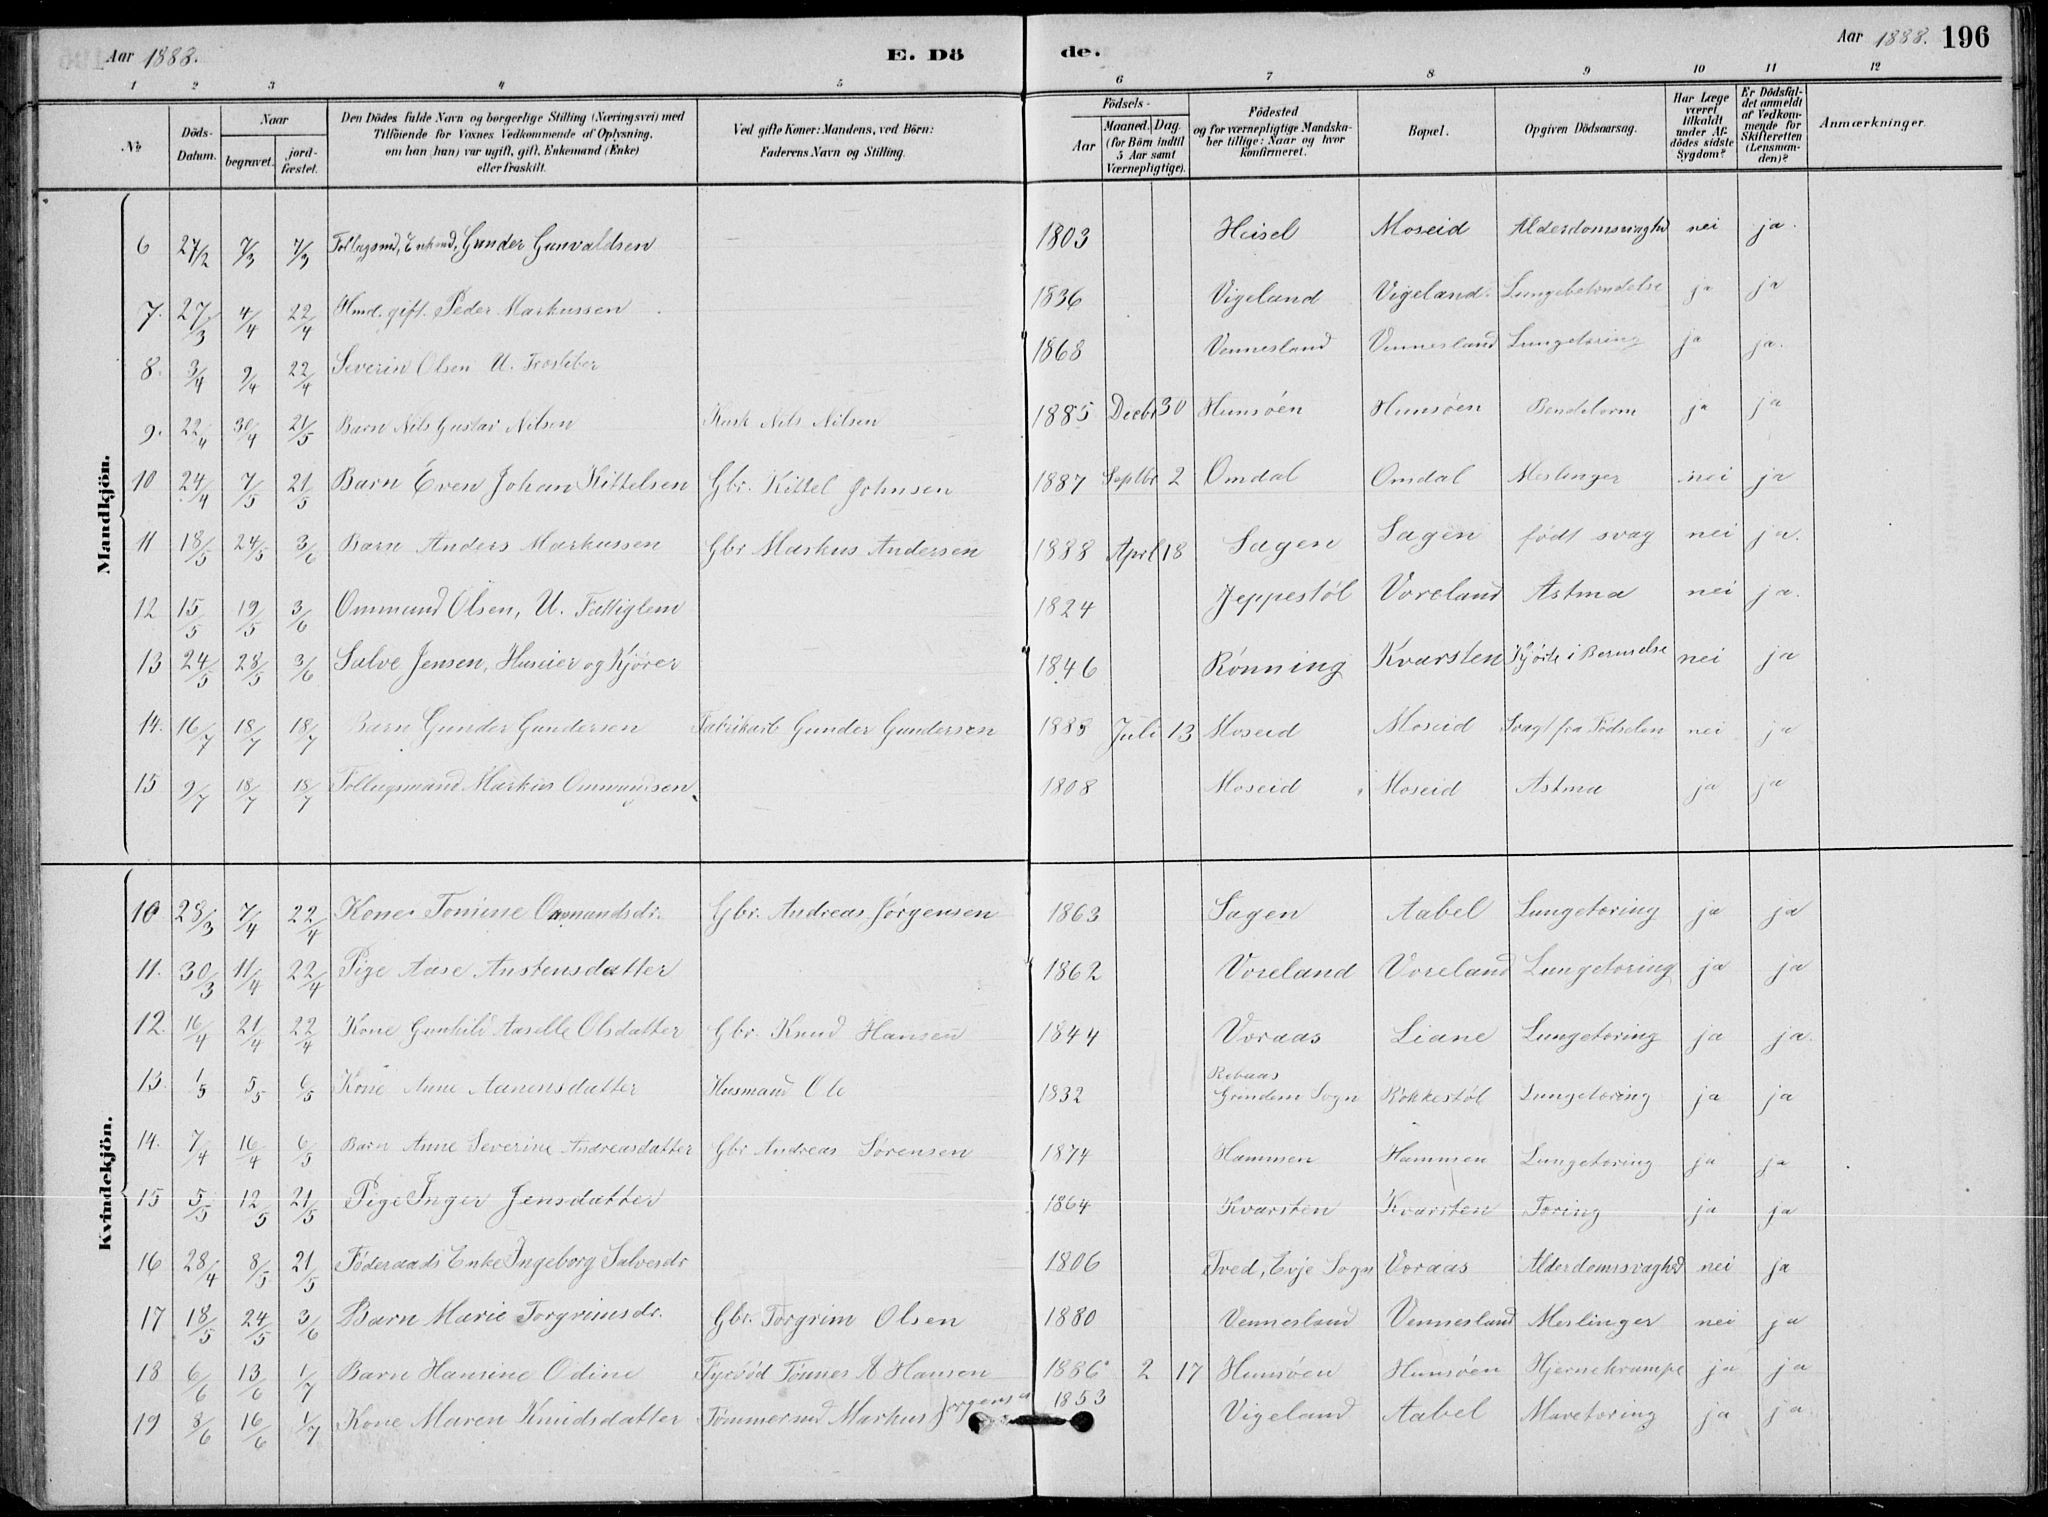 Aar 1888. E. Dö de. Aar 1888. 196
1 2 3 4 5 6 7 8 9 10 11 12
No Döds-Datum. Naar begravet. jordfæstet. Den Dödes fulde Navn og borgerlige Stilling (Næringsvei) med Tilföiende for Voxnes Vedkommende af Oplysning, om han (hun) var ugift, gift, Enkemand (Enke) eller fraskilt. Ved gifte Koner: Mandens, ved Börn: Faderens Navn og Stilling. Födsels- Aar Maaned. Dag. (for Börn indtil 5 Aar samt Værnepligtige). Födested og for værnepligtige Mandskaber tillige: Naar og hvor konfirmeret. Bopæl. Opgiven Dödsaarsag. Har Læge været tilkaldt under Afdödes sidste Sygdom? Er Dödsfaldet anmeldt af Vedkommende for Skifteretten (Lensmanden)? Anmærkninger.
Mandkjön.
6 27/2 7/3 7/3 Follugsmd, Enkmd, Gunder Gunvaldsen 1803 Heisel Moseid Alderdomssvaghd nei ja.
7. 27/3 4/4 22/4 Hmd. gift. Peder Markussen 1836 Vigeland Vigeland. Lungebetendelse ja ja
8. 3/4 9/4 22/4 Severin Olsen U. 1868 Vennesland Vennesland Lungetæring ja ja.
9. 22/4 30/4 21/5 Barn Nils Gustav Nilsen Kusk Nils Nilsen 1885 Decbr 30 Hunsøen Hunsøen Bendelorm ja ja
10 24/4 7/5 21/5 Barn Even Johan Kittelsen Gbr. Kittel Johnsen 1887 Septbr 2 Omdal Omdal Meslinger nei ja
11 18/5 24/5 3/6 Barn Anders Markussen Gbr Markus Andersen 1888 Aprl 18 Sagen Sagen født svag nei ja.
12 15/5 19/5 3/6 Ommund Olsen, U. Fattiglem 1824 Jeppestøl Voreland Astma nei ja.
13 24/5 28/5 3/6 Salve Jensen, Huseier og Kjører 1846 Rønning Kvarsten Kjørte i nei ja
14. 16/7 18/7 18/7 Barn Gunder Gundersen Fabrikarb Gunder Gundersen 1888 Juli 13 Moseid Moseid Svagt fra Fødselen nei ja
15 9/7 18/7 18/7 Follugsmand Markus Ommundsen 1808 Moseid Moseid Astma ja ja
Kvindekjön.
10 28/3 7/4 22/4 Kone Tomine Ommundsdr. Gbr. Andreas Jørgensen 1863 Sagen Aabel Lungetæring ja ja
11. 30/3 11/4 22/4 Pige Aase Anstensdatter 1862 Voreland Voreland Lungetæring ja ja
12. 16/4 21/4 22/4 Kone Gunhild Aaselle Olsdatter Gbr. Knud Hansen 1844 Voraas Liane Lungetæring ja ja.
13. 1/5 5/5 6/5 Kone Anne Aanensdatter Husmand Ole 1832 Grindem Sogn Rokkestøl Lungetæring ja ja
14. 7/4 16/4 6/5 Barn Anne Severine Andreasdatter Gbr Andreas Sørensen 1874 Hammen Hammen Lungetæring ja ja
15 5/5 12/5 21/5 Pige Inger Jensdatter 1864 Kvarsten Kvarsten Tæring ja ja
16 28/4 8/5 21/5 Føderaads Enke Ingeborg Salvesdr 1806 Tved, Evje Sogn Voraas Alderdomssvaghd nei ja
17 18/5 24/5 3/6 Barn Marie Torgrimsdr. Gbr. Torgrim Olsen 1880 Vennesland Vennesland Meslinger nei ja
18 6/6 13/6 1/7 Barn Hansine Odine Fyrbød Tønnes A Hansen 1886 2 17 Hunsøen Hunsøen Hjernekrampe ja ja
19 8/6 16/6 1/7 Kone Maren Knudsdatter Tømmermd Markus Jørgensen 1853 Vigeland Aabel Mavetæring ja ja.